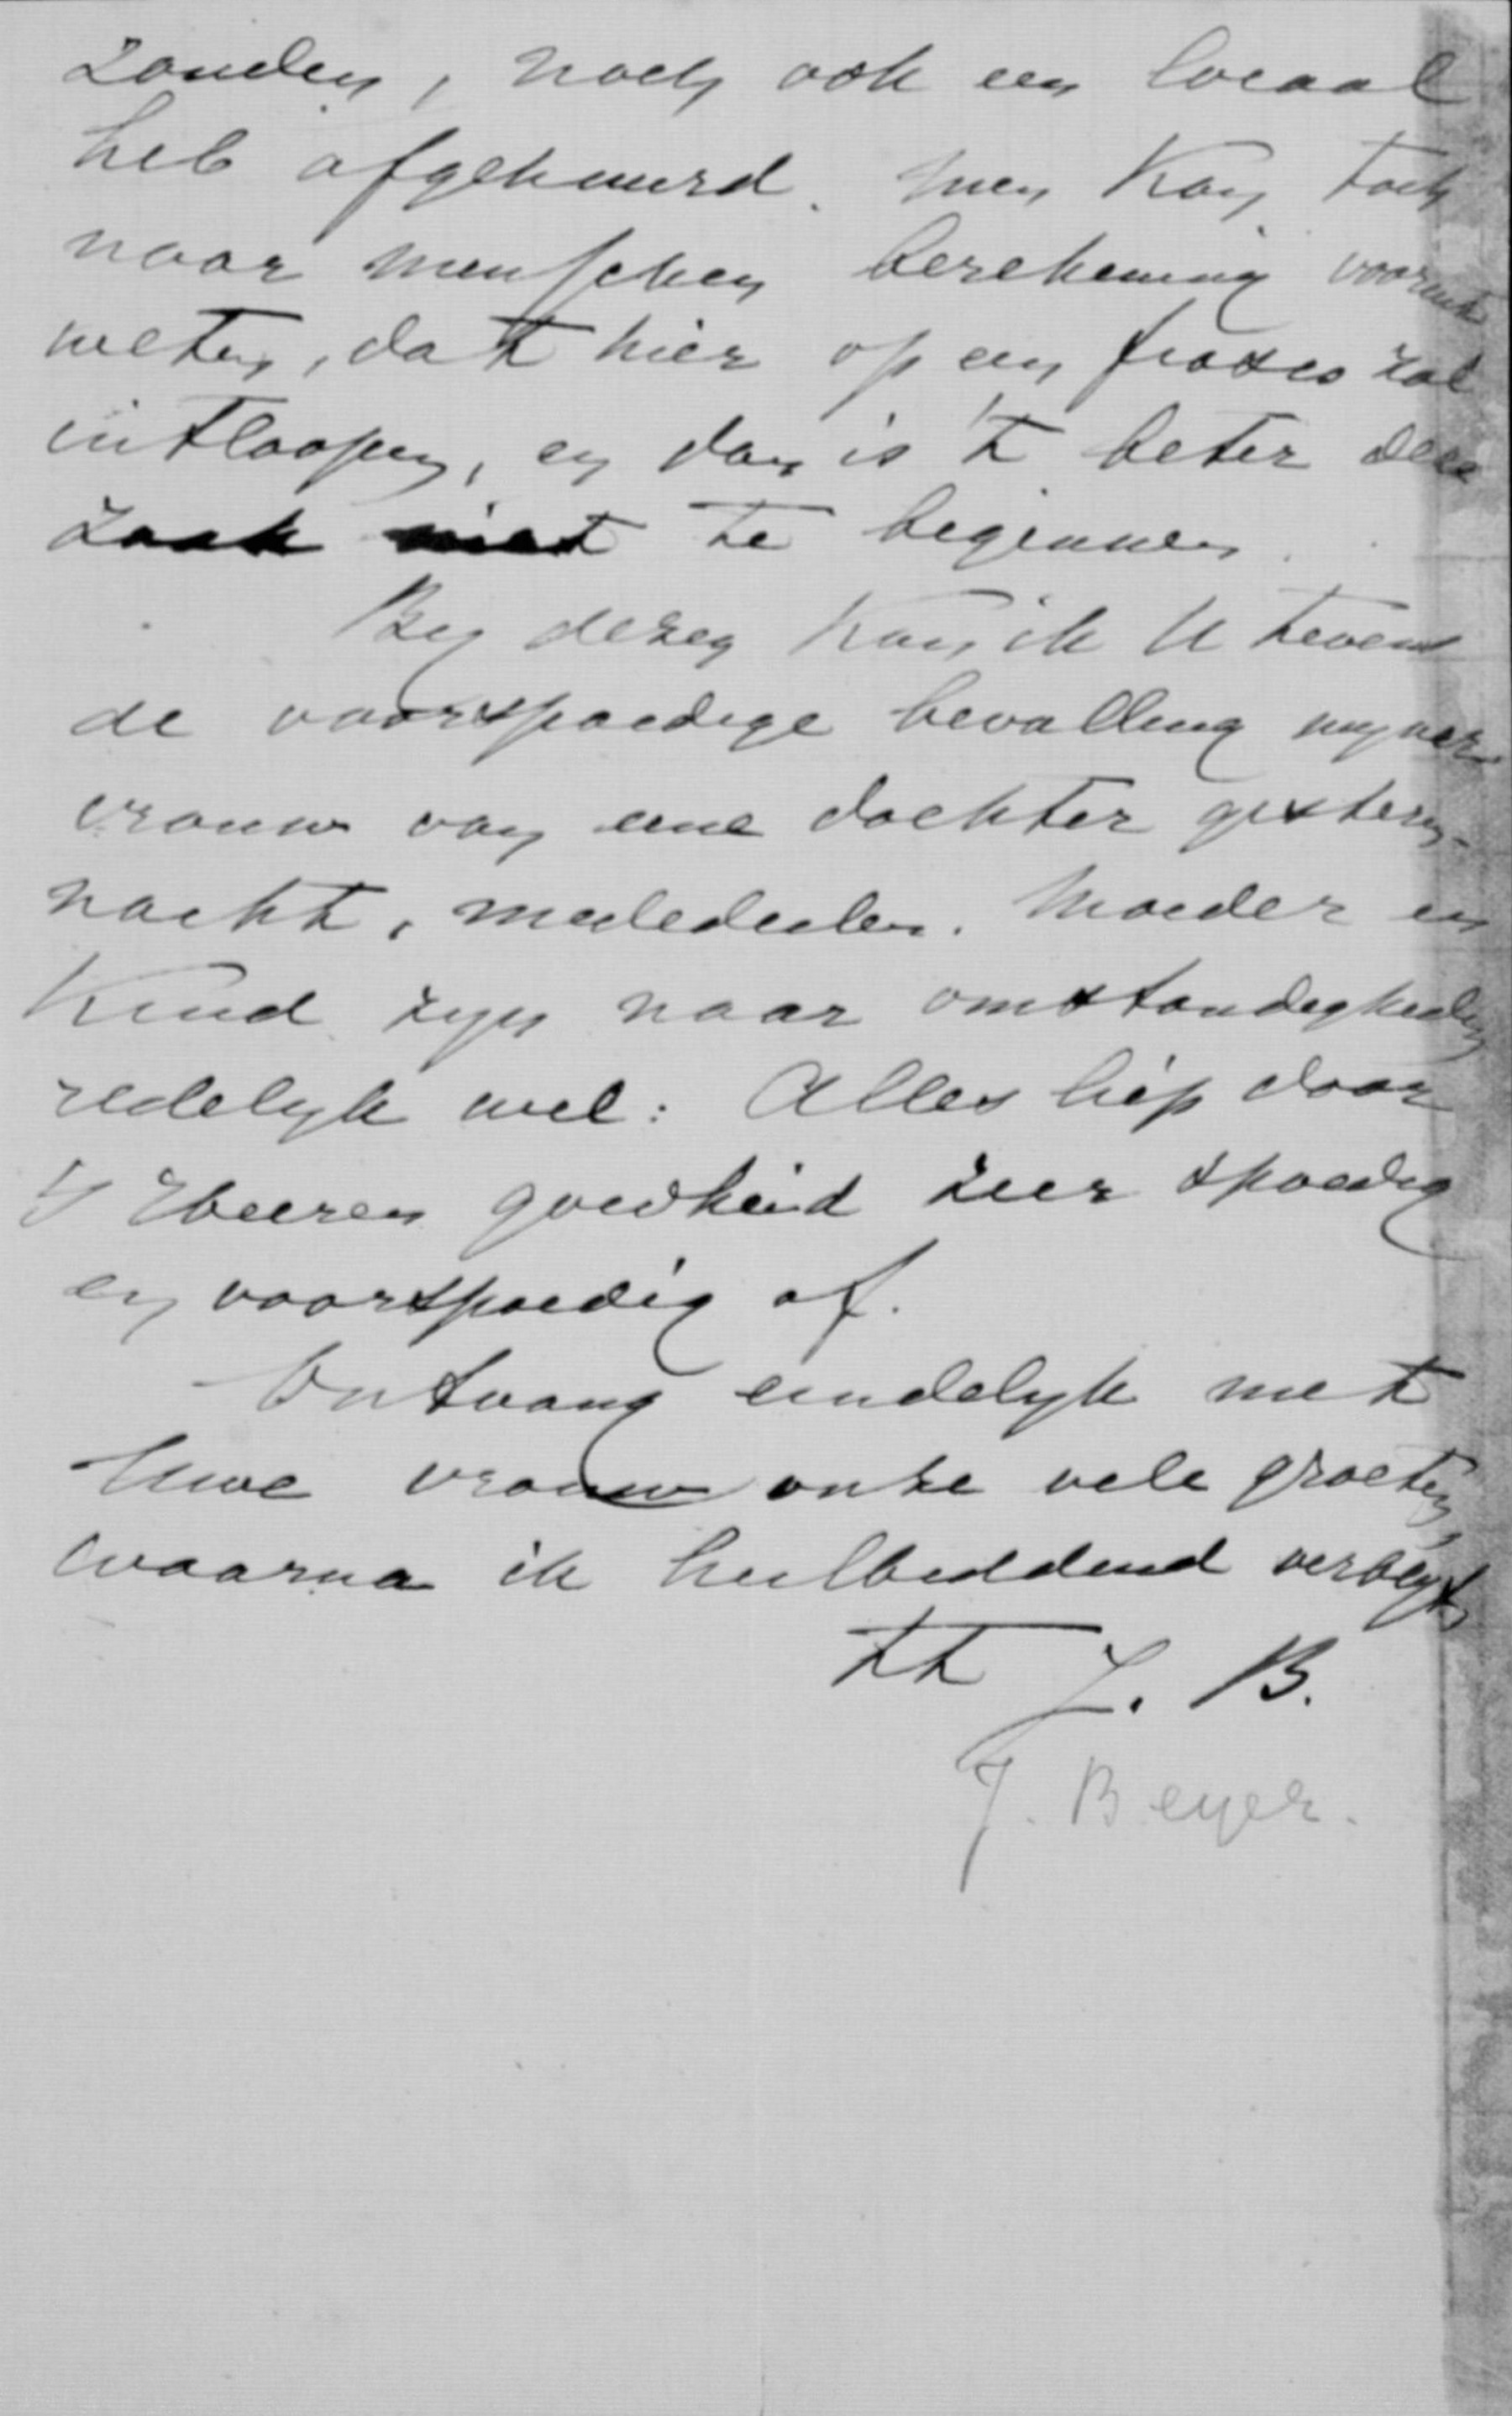 zouden, noch ook een locaal
heb afgehuurd. Men kan toch
naar menschen berekening vooruit
weten, dat hier op een fiasco zal
uitloopen, en dan is 't beter deze
zaak niet te beginnen.
By dezen kan ik U tevens
de voorspoedige bevalling myner
vrouw van eene dochter gisteren-
nacht, mededeelen. Moeder en
Kind zyn naar omstandigheden
redelyk wel: Alles liep door
's Heeren goedheid zeer spoedig
en voorspoedig af.
Ontvang eindelyk met
Uwe vrouw onze vele groeten,
waarna ik heilbiddend verblyf,
tt J. B.
J. Beyer.